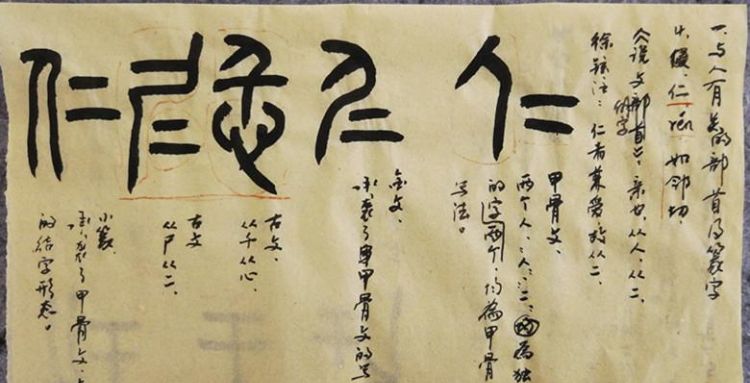 一、与人有关的部首及篆字
仁、rén、如邻切、
说文部首亲也、从人、从二、
徐铉注：仁者兼爱，故从二、
仁
甲骨文、
两个人、人、二、为独
的字两个、均为甲骨
写法。
仁
金文、
承袭了甲骨文的写
忎
古文、
从千从心、
𡰥
古文
从尸从二、
仁
小篆、
承袭了甲骨文、
的结字形态。